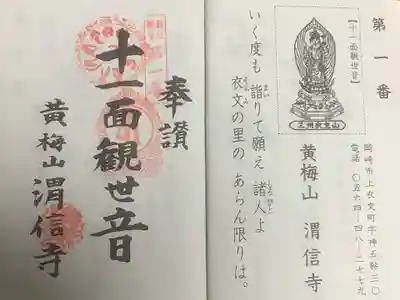 第一番
【十一面観世音】
三州衣里山
岡崎市上衣文町字神五鞍三〇
電話 〇五六四-四八-二七七九
黄梅山 渭信寺
いく度も 詣りて願え 諸人よ
衣文の里の あらん限りは。
奉讃
十一面観世音
黄梅山 渭信寺